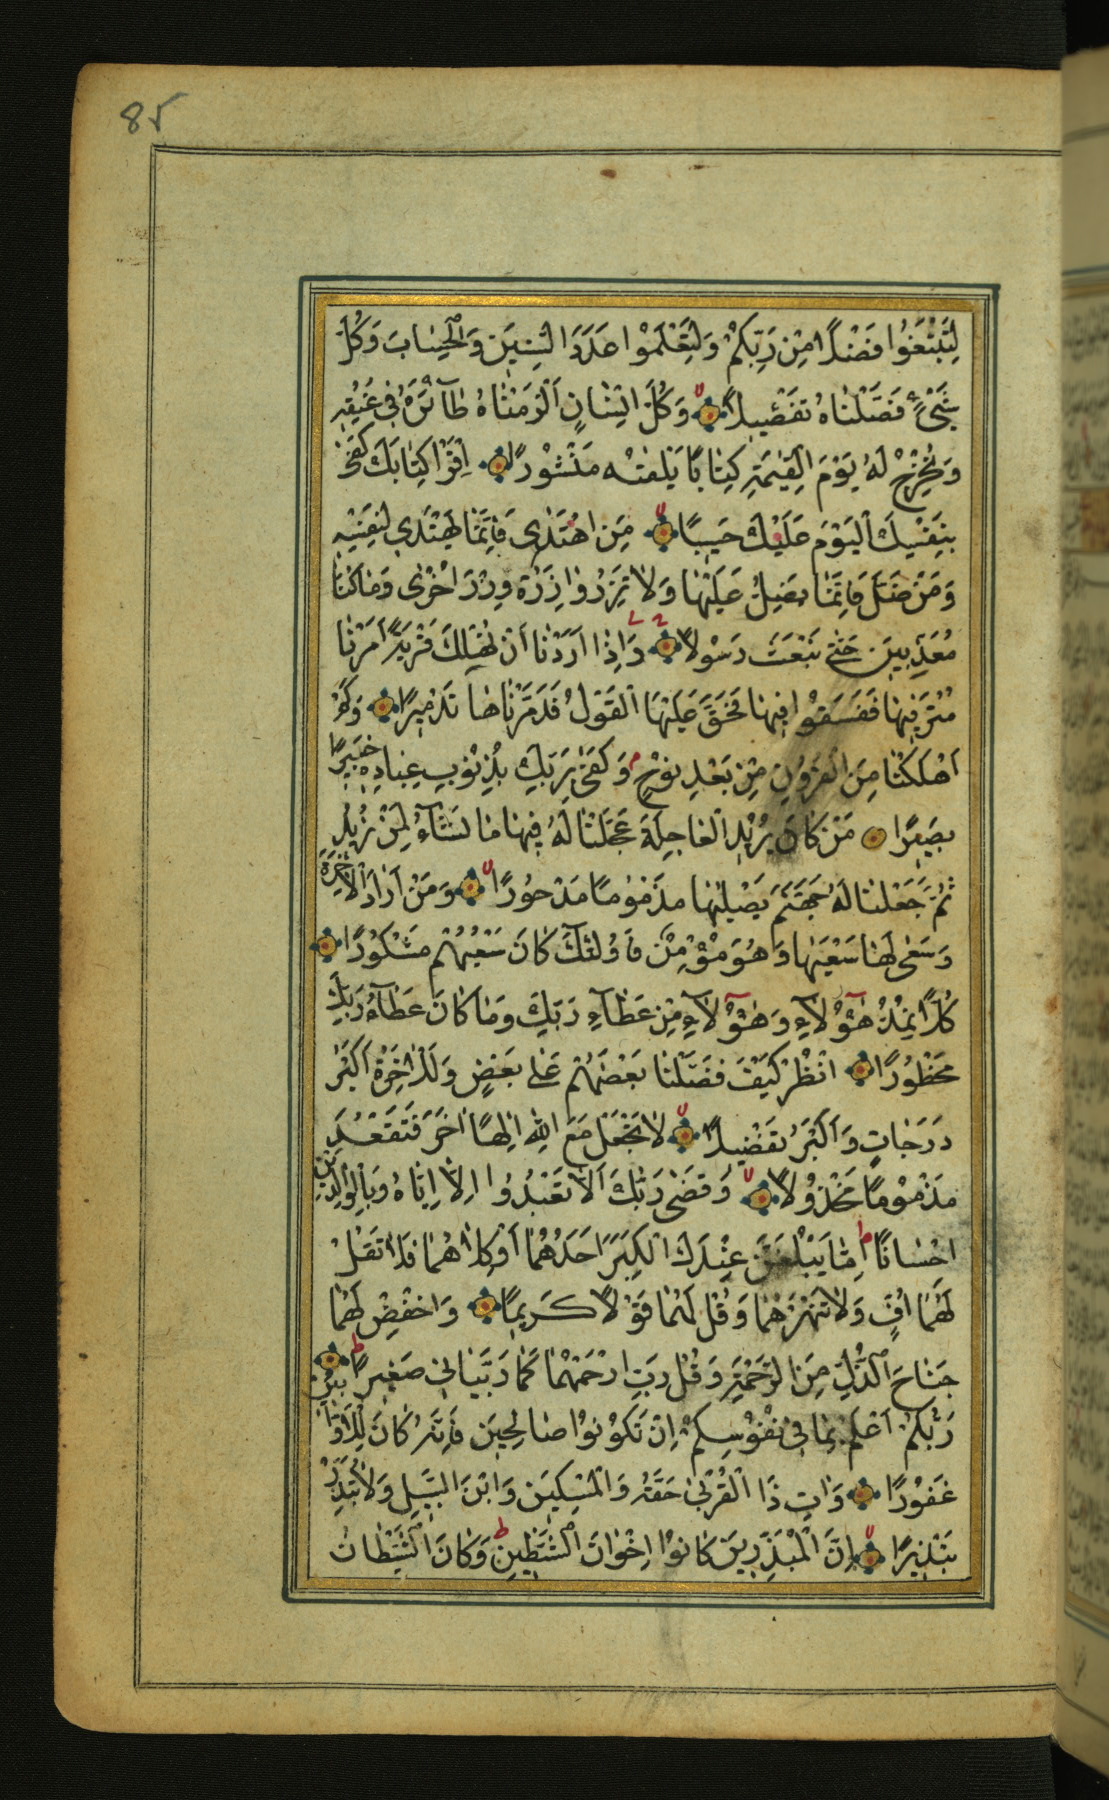 85
لِتَبْتَغُوا فَضْلًا مِنْ رَبِّكُمْ وَلِتَعْلَمُوا عَدَدَ السِّنِينَ وَالْحِسَابَ وَكُلَّ
شَيْءٍ فَصَّلْنَاهُ تَفْصِيلًا وَكُلَّ اِنْسَانٍ اَلْزَمْنَاهُ طَآئِرَهُ فِي عُنُقِهِ
وَنُخْرِجُ لَهُ يَوْمَ الْقِيٰمَةِ كِتَابًا يَلْقٰيهُ مَنْشُورًا اِقْرَأْ كِتَابَكَ كَفٰى
بِنَفْسِكَ الْيَوْمَ عَلَيْكَ حَسِيبًا مَنِ اهْتَدٰى فَاِنَّمَا يَهْتَدِي لِنَفْسِهِ
وَمَنْ ضَلَّ فَاِنَّمَا يَضِلُّ عَلَيْهَا وَلَا تَزِرُ وَازِرَةٌ وِزْرَ اُخْرٰى وَمَا كُنَّا
مُعَذِّبِينَ حَتّٰى نَبْعَثَ رَسُولًا وَاِذَا اَرَدْنَا اَنْ نُهْلِكَ قَرْيَةً اَمَرْنَا
مُتْرَفِيهَا فَفَسَقُوا فِيهَا فَحَقَّ عَلَيْهَا الْقَوْلُ فَدَمَّرْنَاهَا تَدْمِيرًا وَكَمْ
اَهْلَكْنَا مِنَ الْقُرُونِ مِنْ بَعْدِ نُوحٍ وَكَفٰى بِرَبِّكَ بِذُنُوبِ عِبَادِهِ خَبِيرًا
بَصِيرًا مَنْ كَانَ يُرِيدُ الْعَاجِلَةَ عَجَّلْنَا لَهُ فِيهَا مَا نَشَآءُ لِمَنْ نُرِيدُ
ثُمَّ جَعَلْنَا لَهُ جَهَنَّمَ يَصْلٰيهَا مَذْمُومًا مَدْحُورًا وَمَنْ اَرَادَ الْاٰخِرَةَ
وَسَعٰى لَهَا سَعْيَهَا وَهُوَ مُؤْمِنٌ فَاُولٰئِكَ كَانَ سَعْيُهُمْ مَشْكُورًا
كُلًّا نُمِدُّ هٰٓؤُلَاءِ وَهٰٓؤُلَآءِ مِنْ عَطَآءِ رَبِّكَ وَمَا كَانَ عَطَآءُ رَبِّكَ
مَحْظُورًا اُنْظُرْ كَيْفَ فَضَّلْنَا بَعْضَهُمْ عَلٰى بَعْضٍ وَلَلْاٰخِرَةُ اَكْبَرُ
دَرَجَاتٍ وَاَكْبَرُ تَفْضِيلًا لَا تَجْعَلْ مَعَ اللّٰهِ اِلٰهًا اٰخَرَ فَتَقْعُدَ
مَذْمُومًا مَخْذُولًا وَقَضٰى رَبُّكَ اَلَّا تَعْبُدُوا اِلَّا اِيَّاهُ وَبِالْوَالِدَيْنِ
اِحْسَانًا اِمَّا يَبْلُغَنَّ عِنْدَكَ الْكِبَرَ اَحَدُهُمَا اَوْ كِلَاهُمَا فَلَا تَقُلْ
لَهُمَا اُفٍّ وَلَا تَنْهَرْهُمَا وَقُلْ لَهُمَا قَوْلًا كَرِيمًا وَاخْفِضْ لَهُمَا
جَنَاحَ الذُّلِّ مِنَ الرَّحْمَةِ وَقُلْ رَبِّ ارْحَمْهُمَا كَمَا رَبَّيَانِي صَغِيرًا
رَبُّكُمْ اَعْلَمُ بِمَا فِي نُفُوسِكُمْ اِنْ تَكُونُوا صَالِحِينَ فَاِنَّهُ كَانَ لِلْاَوَّابِينَ
غَفُورًا وَاٰتِ ذَا الْقُرْبٰى حَقَّهُ وَالْمِسْكِينَ وَابْنَ السَّبِيلِ وَلَا تُبَذِّرْ
تَبْذِيرًا اِنَّ الْمُبَذِّرِينَ كَانُوا اِخْوَانَ الشَّيَاطِينِ وَكَانَ الشَّيْطَانُ